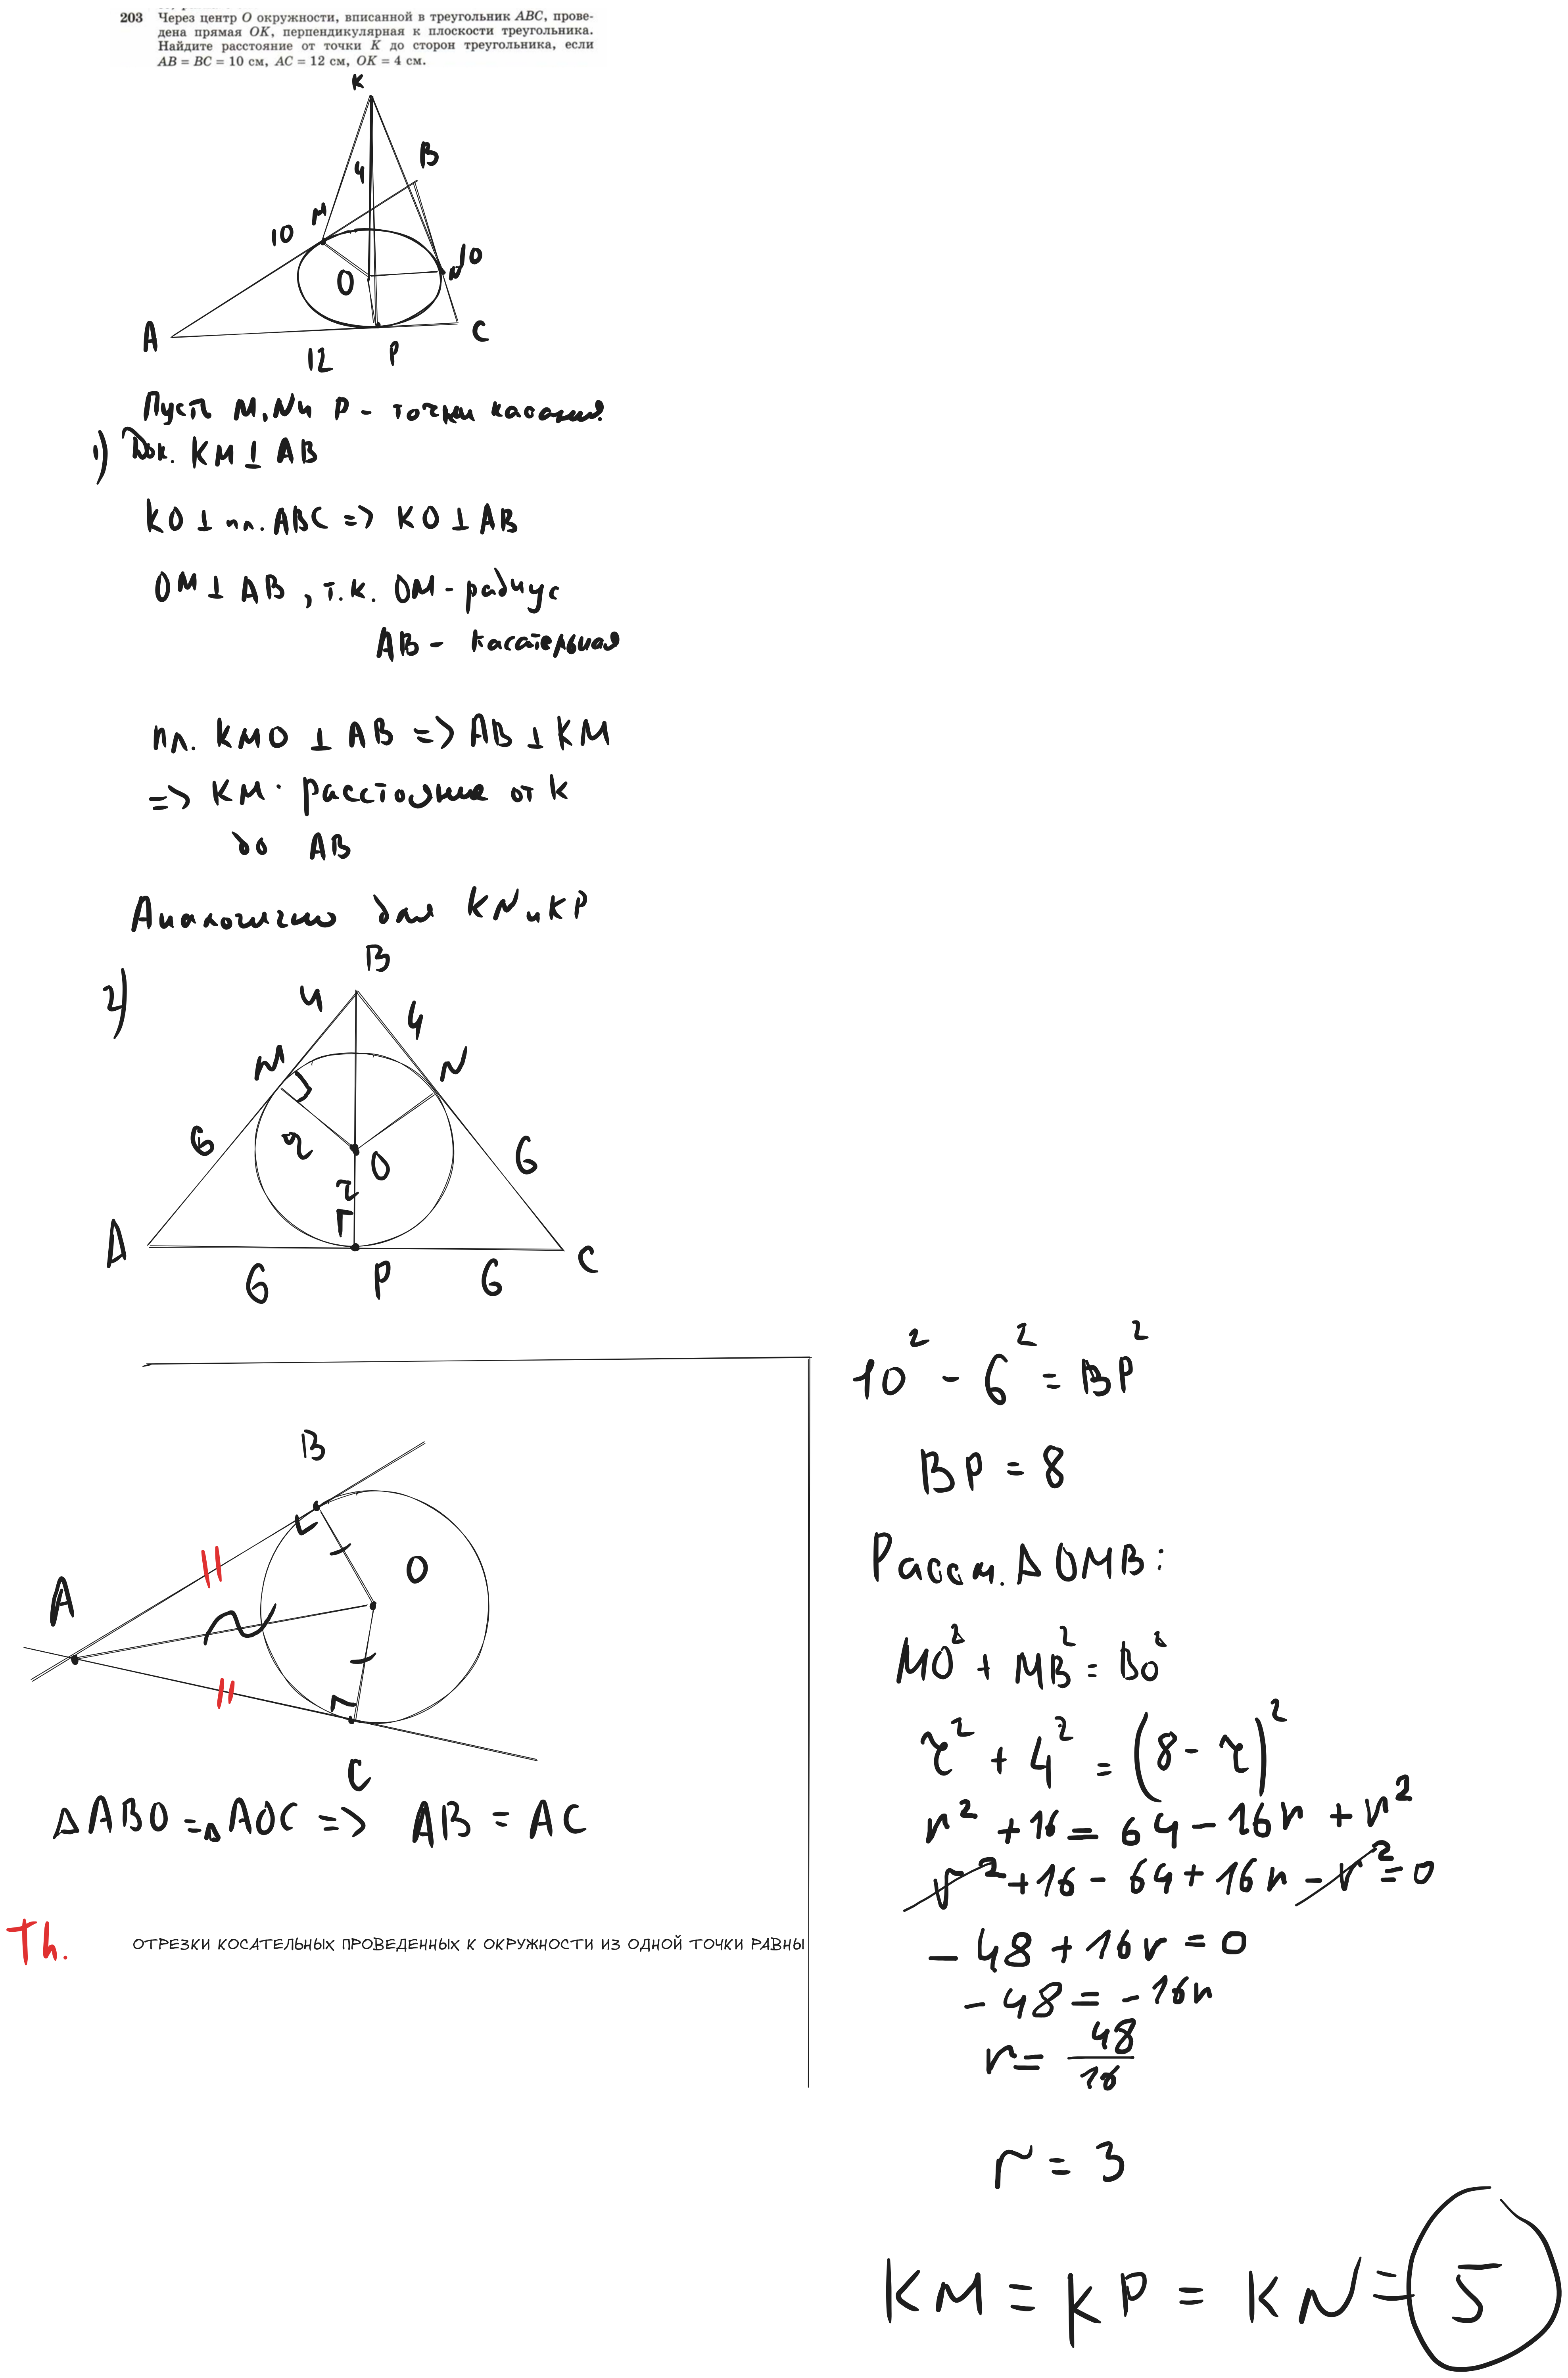 203 Через центр O окружности, вписанной в треугольник ABC, прове-
дена прямая OK, перпендикулярная к плоскости треугольника.
Найдите расстояние от точки K до сторон треугольника, если
AB = BC = 10 см, AC = 12 см, OK = 4 см.
K
4
B
M
10
10
O
N
A
C
12
P
Пусть M, N и P - точки касания.
1) Док. KM ⊥ AB
KO ⊥ пл. ABC => KO ⊥ AB
OM ⊥ AB, т.к. OM - радиус
AB - касательная
пл. KMO ⊥ AB => AB ⊥ KM
=> KM - расстояние от K
до AB
Аналогично для KN и KP
2)
B
4
4
M
N
6
r
O
6
r
A
C
6
P
6
B
O
A
C
△ABO = △AOC => AB = AC
Th. ОТРЕЗКИ КОСАТЕЛЬНЫХ ПРОВЕДЕННЫХ К ОКРУЖНОСТИ ИЗ ОДНОЙ ТОЧКИ РАВНЫ
10² - 6² = BP²
BP = 8
Рассм. △OMB:
MO² + MB² = BO²
r² + 4² = (8 - r)²
r² + 16 = 64 - 16r + r²
r² + 16 - 64 + 16r - r² = 0
- 48 + 16r = 0
- 48 = - 16r
r = 48/16
r = 3
KM = KP = KN = 5